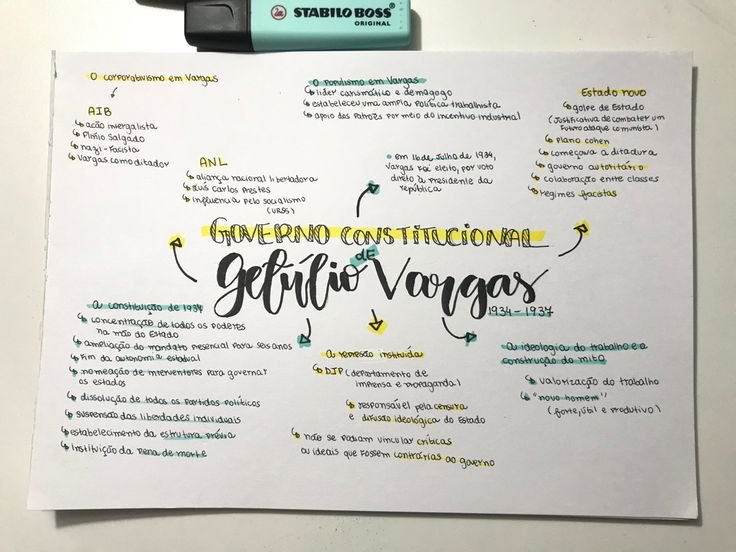 STABILO BOSS
ORIGINAL
O corporativismo em Vargas
AIB
ação intergalista
Plínio Salgado
nazi-Facista
Vargas como ditador
ANL
aliança nacional libertadora
Luís Carlos Prestes
influência pelo socialismo
(URSS)
O populismo em Vargas
líder carismático e demagogo
estabeleceu uma ampla Política trabalhista
apoio dos Patrões por meio do incentivo industrial
em 16 de Julho de 1934,
Vargas Foi eleito, por voto
direto à Presidente da
república
Estado novo
golpe de Estado
(Justificativa de combater um
Futuro ataque comunista)
plano cohen
começava a ditadura
governo autoritário
colaboração entre classes
regimes facistas
GOVERNO CONSTITUCIONAL
DE
Getúlio Vargas
1934-1937
A constituição de 1934
concentração de todos os poderes
na mão do Estado
ampliação do mandato presencial Para seis anos
Fim da autonomia estadual
nomeação de interventores para governar
os estados
dissolução de todos os Partidos Políticos
suspensão das liberdades individuais
estabelecimento da estrutura Prévia
Instituição da Pena de morte
A repressão instituída
DIP (departamento de
imprensa e propaganda)
responsável pela censura
e difusão ideológica do Estado
não se Podiam vincular críticas
ou ideais que fossem contrárias ao governo
A ideologia do trabalho e a
construção do mito
valorização do trabalho
"novo homem"
(forte, útil e produtivo)